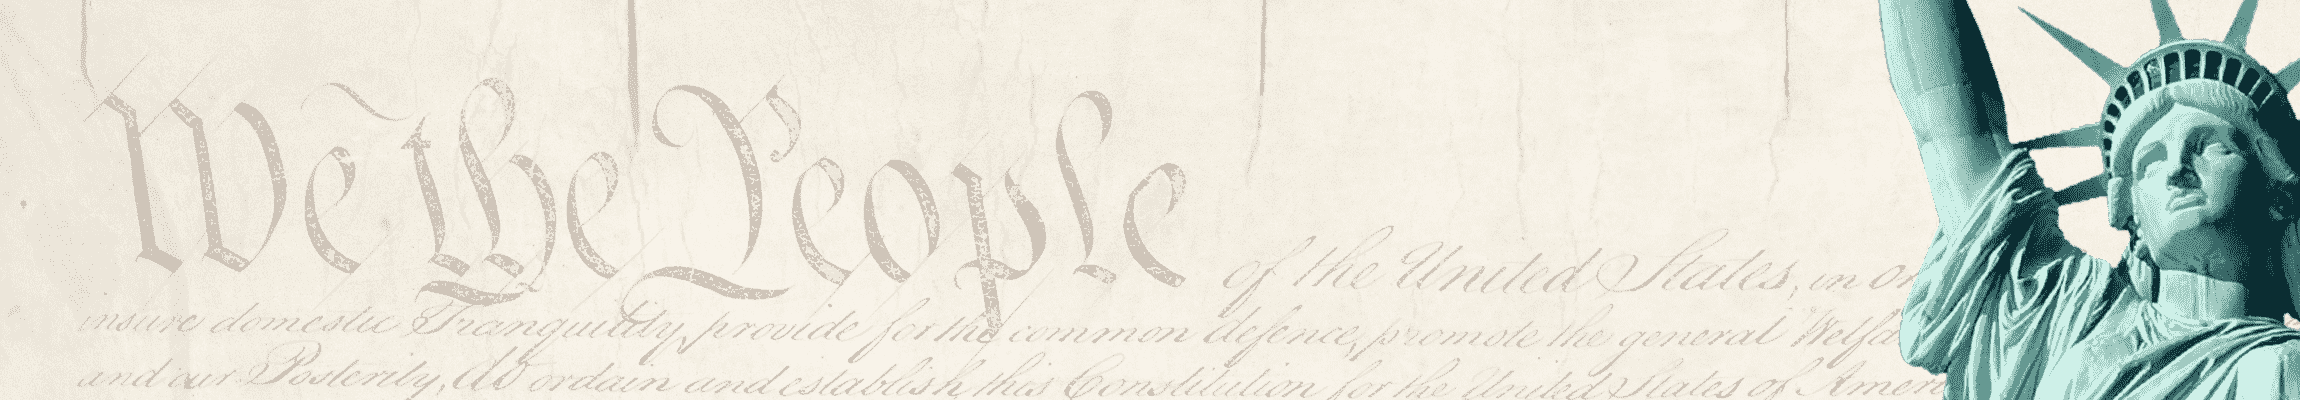 We the People of the United States, in or
insure domestic Tranquility, provide for the common defence, promote the general Welfa
and our Posterity, do ordain and establish this Constitution for the United States of Amer